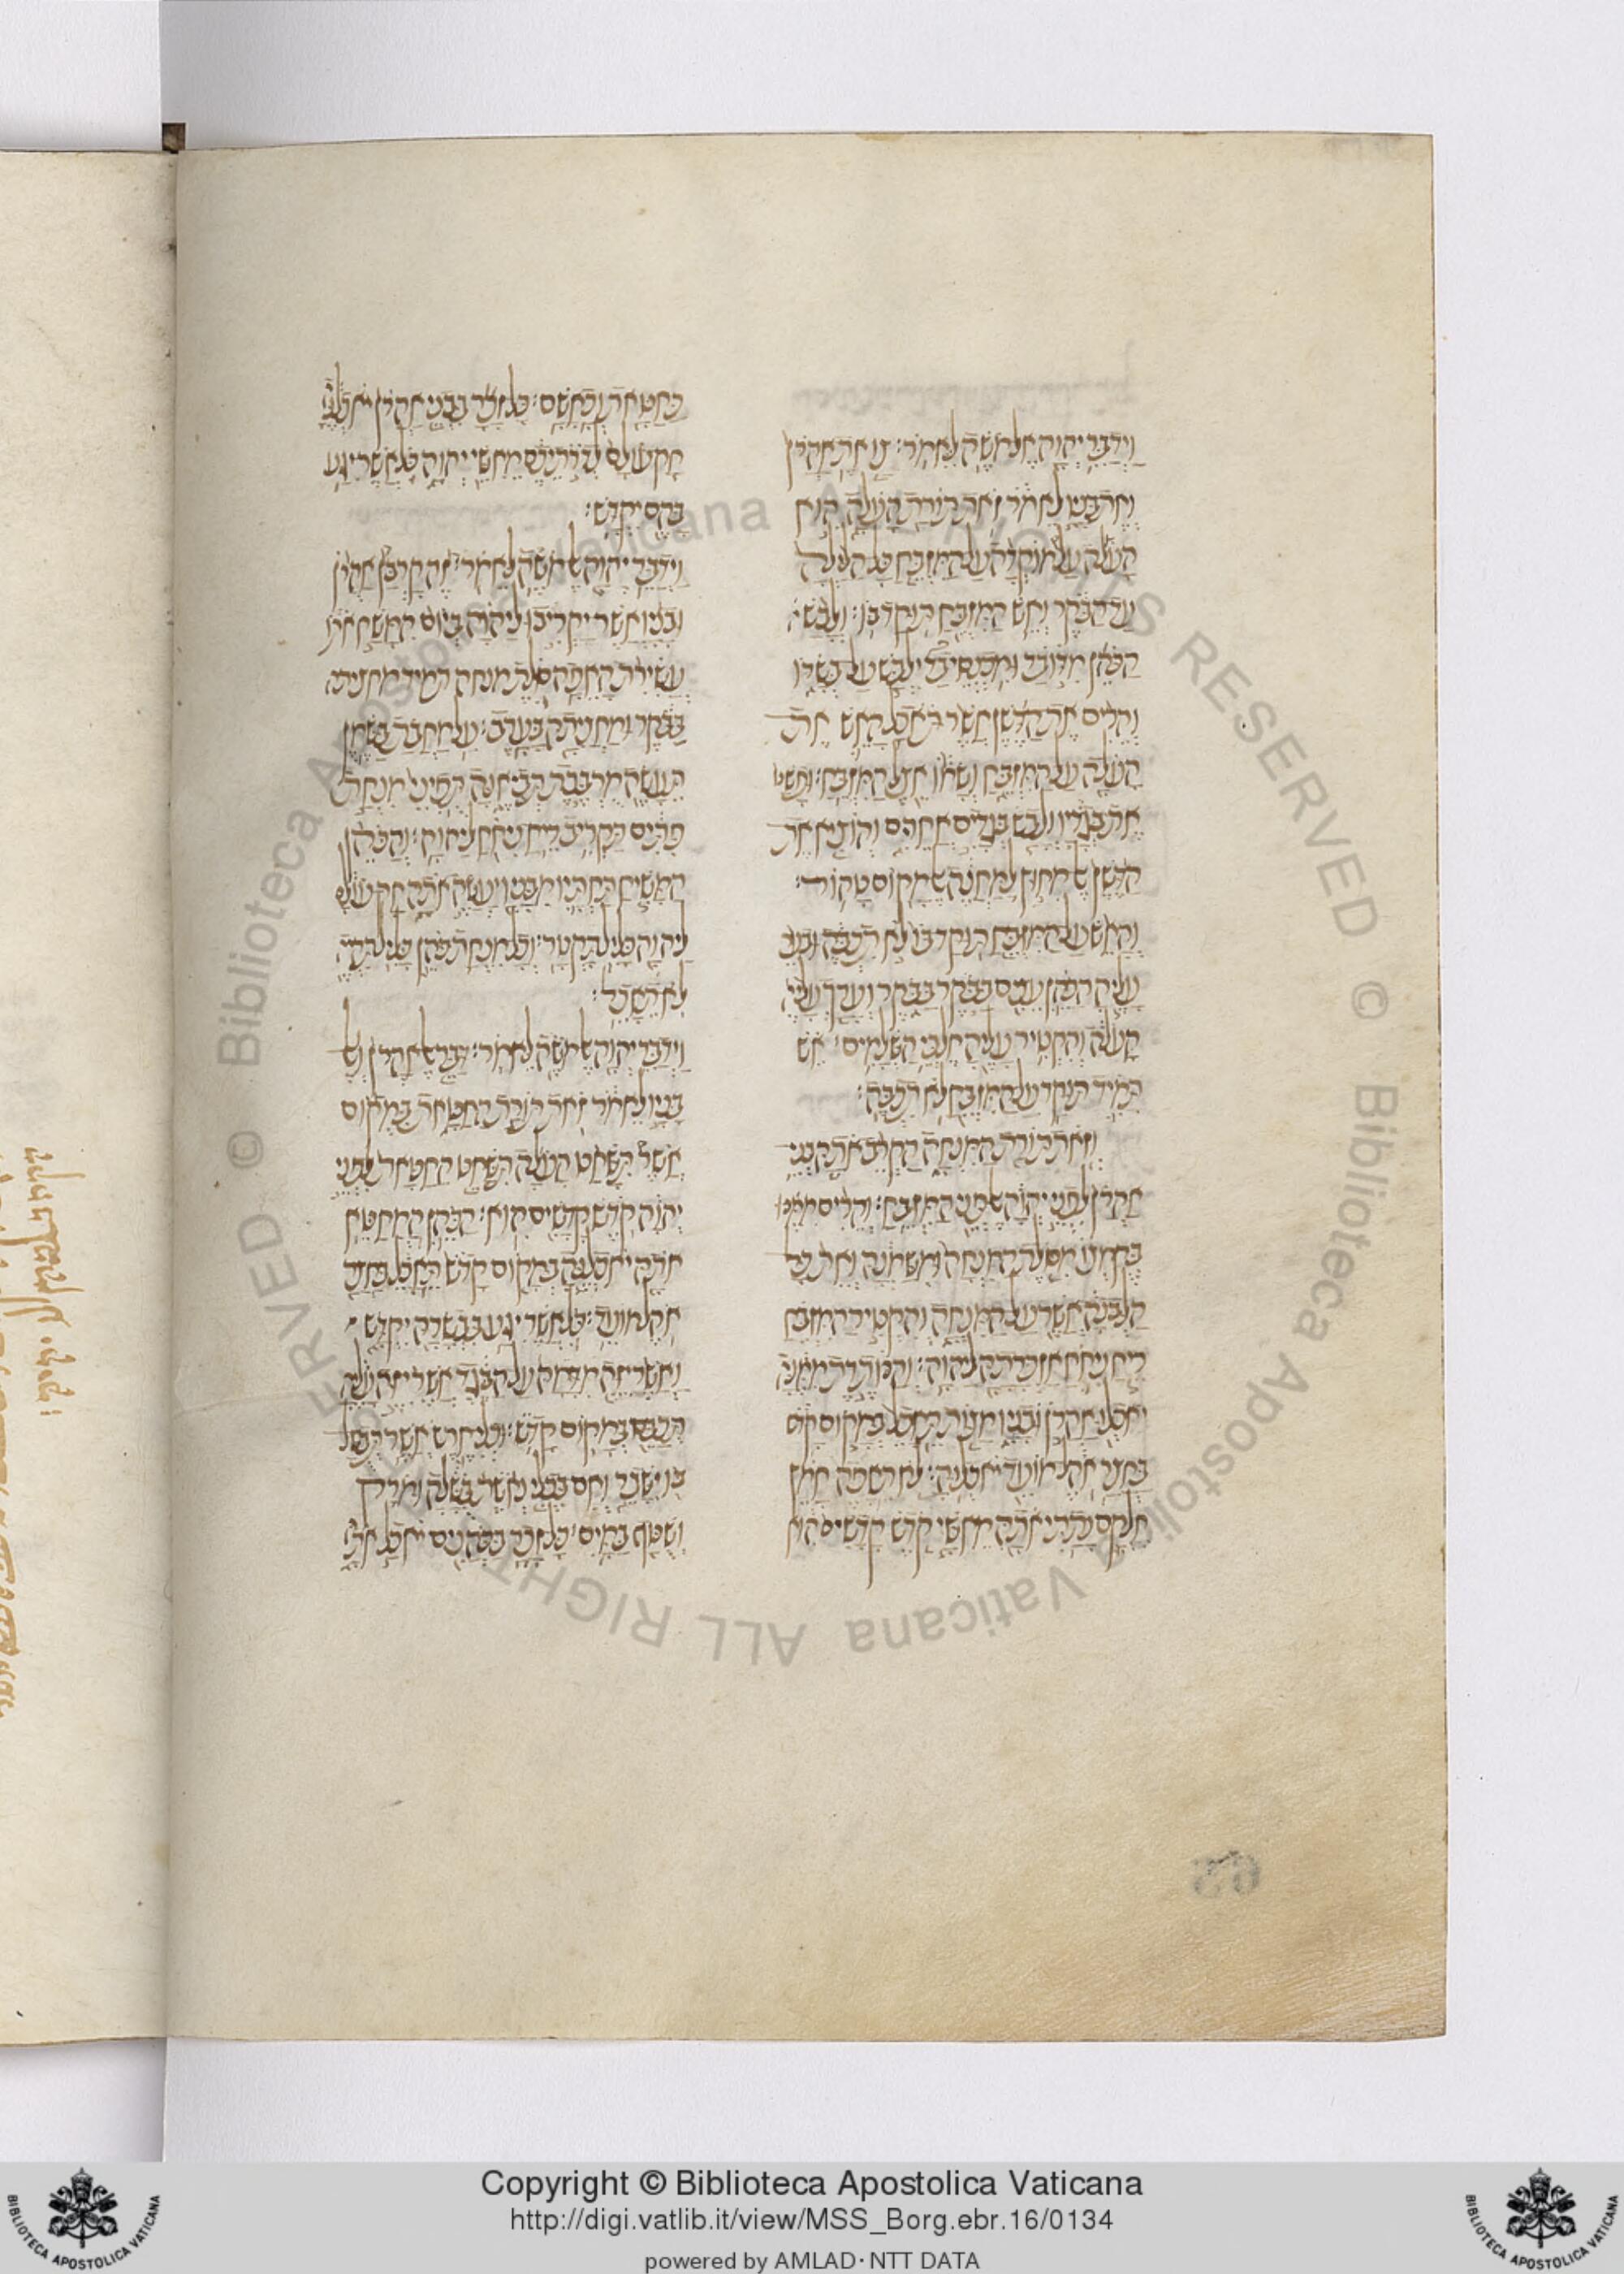 וַיְדַבֵּר יְהוָה אֶל מֹשֶׁה לֵּאמֹר׃ צַו אֶת אַהֲרֹן
וְאֶת בָּנָיו לֵאמֹר זֹאת תּוֹרַת הָעֹלָה הִוא
הָעֹלָה עַל מוֹקְדָה עַל הַמִּזְבֵּחַ כָּל הַלַּיְלָה
עַד הַבֹּקֶר וְאֵשׁ הַמִּזְבֵּחַ תּוּקַד בּוֹ׃ וְלָבַשׁ
הַכֹּהֵן מִדּוֹ בַד וּמִכְנְסֵי בַד יִלְבַּשׁ עַל בְּשָׂרוֹ
וְהֵרִים אֶת הַדֶּשֶׁן אֲשֶׁר תֹּאכַל הָאֵשׁ אֶת
הָעֹלָה עַל הַמִּזְבֵּחַ וְשָׂמוֹ אֵצֶל הַמִּזְבֵּחַ׃ וּפָשַׁט
אֶת בְּגָדָיו וְלָבַשׁ בְּגָדִים אֲחֵרִים וְהוֹצִיא אֶת
הַדֶּשֶׁן אֶל מִחוּץ לַמַּחֲנֶה אֶל מָקוֹם טָהוֹר׃
וְהָאֵשׁ עַל הַמִּזְבֵּחַ תּוּקַד בּוֹ לֹא תִכְבֶּה וּבִעֵר
עָלֶיהָ הַכֹּהֵן עֵצִים בַּבֹּקֶר בַּבֹּקֶר וְעָרַךְ עָלֶיהָ
הָעֹלָה וְהִקְטִיר עָלֶיהָ חֶלְבֵי הַשְּׁלָמִים׃ אֵשׁ
תָּמִיד תּוּקַד עַל הַמִּזְבֵּחַ לֹא תִכְבֶּה׃
וְזֹאת תּוֹרַת הַמִּנְחָה הַקְרֵב אֹתָהּ בְּנֵי
אַהֲרֹן לִפְנֵי יְהוָה אֶל פְּנֵי הַמִּזְבֵּחַ׃ וְהֵרִים מִמֶּנּוּ
בְּקֻמְצוֹ מִסֹּלֶת הַמִּנְחָה וּמִשַּׁמְנָהּ וְאֵת כָּל
הַלְּבֹנָה אֲשֶׁר עַל הַמִּנְחָה וְהִקְטִיר הַמִּזְבֵּחַ
רֵיחַ נִיחֹחַ אַזְכָּרָתָהּ לַיהוָה׃ וְהַנּוֹתֶרֶת מִמֶּנָּה
יֹאכְלוּ אַהֲרֹן וּבָנָיו מַצּוֹת תֵּאָכֵל בְּמָקוֹם קָדֹשׁ
בַּחֲצַר אֹהֶל מוֹעֵד יֹאכְלוּהָ׃ לֹא תֵאָפֶה חָמֵץ
חֶלְקָם נָתַתִּי אֹתָהּ מֵאִשָּׁי קֹדֶשׁ קָדָשִׁים הִוא
כַּחַטָּאת וְכָאָשָׁם׃ כָּל זָכָר בִּבְנֵי אַהֲרֹן יֹאכְלֶנָּה
חָק עוֹלָם לְדֹרֹתֵיכֶם מֵאִשֵּׁי יְהוָה כֹּל אֲשֶׁר יִגַּע
בָּהֶם יִקְדָּשׁ׃
וַיְדַבֵּר יְהוָה אֶל מֹשֶׁה לֵּאמֹר׃ זֶה קָרְבַּן אַהֲרֹן
וּבָנָיו אֲשֶׁר יַקְרִיבוּ לַיהוָה בְּיוֹם הִמָּשַׁח אֹתוֹ
עֲשִׂירִת הָאֵפָה סֹלֶת מִנְחָה תָּמִיד מַחֲצִיתָהּ
בַּבֹּקֶר וּמַחֲצִיתָהּ בָּעָרֶב׃ עַל מַחֲבַת בַּשֶּׁמֶן
תֵּעָשֶׂה מֻרְבֶּכֶת תְּבִיאֶנָּה תֻּפִינֵי מִנְחַת
פִּתִּים תַּקְרִיב רֵיחַ נִיחֹחַ לַיהוָה׃ וְהַכֹּהֵן
הַמָּשִׁיחַ תַּחְתָּיו מִבָּנָיו יַעֲשֶׂה אֹתָהּ חָק עוֹלָם
לַיהוָה כָּלִיל תָּקְטָר׃ וְכָל מִנְחַת כֹּהֵן כָּלִיל תִּהְיֶה
לֹא תֵאָכֵל׃
וַיְדַבֵּר יְהוָה אֶל מֹשֶׁה לֵּאמֹר׃ דַּבֵּר אֶל אַהֲרֹן וְאֶל
בָּנָיו לֵאמֹר זֹאת תּוֹרַת הַחַטָּאת בִּמְקוֹם
אֲשֶׁר תִּשָּׁחֵט הָעֹלָה תִּשָּׁחֵט הַחַטָּאת לִפְנֵי
יְהוָה קֹדֶשׁ קָדָשִׁים הִוא׃ הַכֹּהֵן הַמְחַטֵּא
אֹתָהּ יֹאכְלֶנָּה בְּמָקוֹם קָדֹשׁ תֵּאָכֵל בַּחֲצַר
אֹהֶל מוֹעֵד׃ כֹּל אֲשֶׁר יִגַּע בִּבְשָׂרָהּ יִקְדָּשׁ
וַאֲשֶׁר יִזֶּה מִדָּמָהּ עַל הַבֶּגֶד אֲשֶׁר יִזֶּה עָלֶיהָ
תְּכַבֵּס בְּמָקוֹם קָדֹשׁ׃ וּכְלִי חֶרֶשׂ אֲשֶׁר תְּבֻשַּׁל
בּוֹ יִשָּׁבֵר וְאִם בִּכְלִי נְחֹשֶׁת בֻּשָּׁלָה וּמֹרַק
וְשֻׁטַּף בַּמָּיִם׃ כָּל זָכָר בַּכֹּהֲנִים יֹאכַל אֹתָהּ
Copyright © Biblioteca Apostolica Vaticana
http://digi.vatlib.it/view/MSS_Borg.ebr.16/0134
powered by AMLAD·NTT DATA